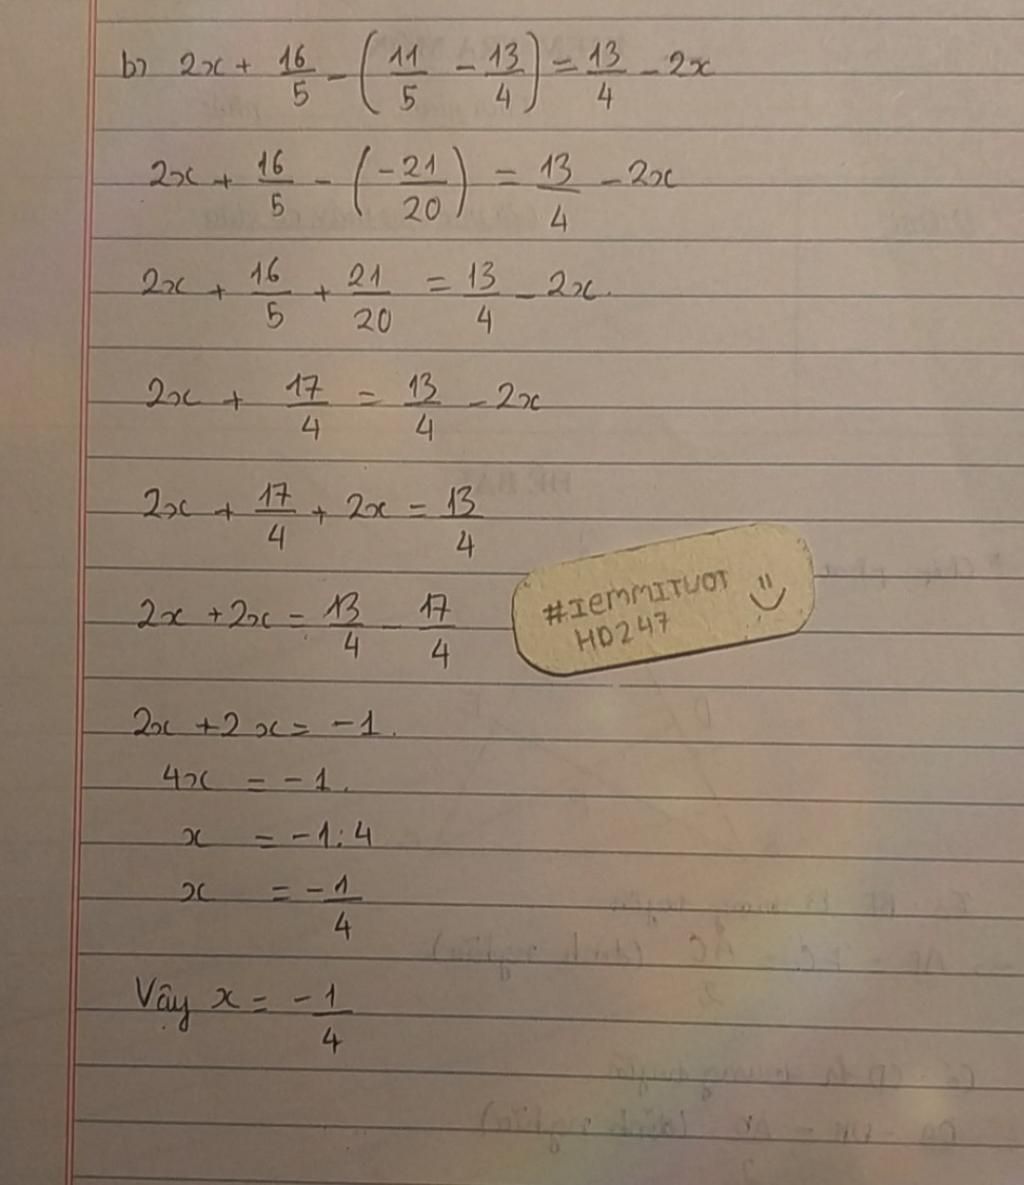 b) 2x + 16/5 - (11/5 - 13/4) = 13/4 - 2x
2x + 16/5 - (-21/20) = 13/4 - 2x
2x + 16/5 + 21/20 = 13/4 - 2x.
2x + 17/4 = 13/4 - 2x
2x + 17/4 + 2x = 13/4
#IEMMITUOT
HD247
2x + 2x = 13/4 - 17/4
2x + 2x = -1.
4x = -1.
x = -1:4
x = -1/4
Vậy x = -1/4